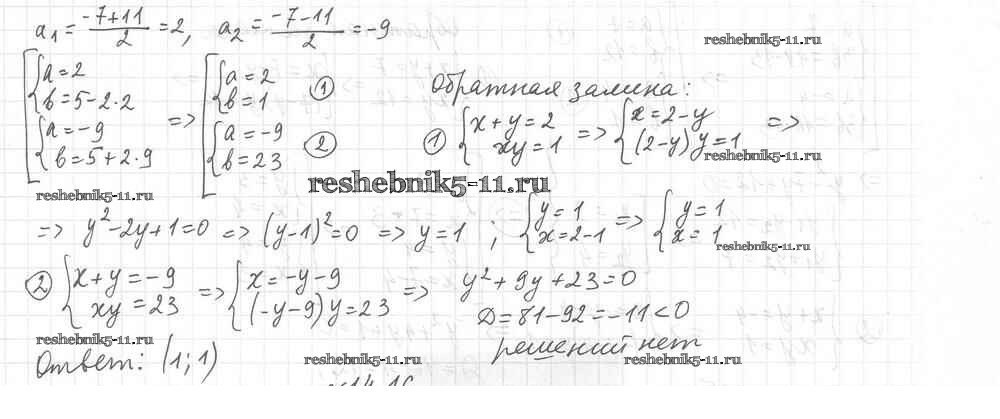 a₁ = (-7+11)/2 = 2, a₂ = (-7-11)/2 = -9
reshebnik5-11.ru
[{a=2 {b=5-2·2 {a=-9 {b=5+2·9 => [{a=2 {b=1 ① {a=-9 {b=23 ②
Обратная замена:
① {x+y=2 {xy=1 => {x=2-y {(2-y)y=1 =>
reshebnik5-11.ru
reshebnik5-11.ru
reshebnik5-11.ru
=> y²-2y+1=0 => (y-1)²=0 => y=1 ; {y=1 {x=2-1 => {y=1 {x=1
reshebnik5-11.ru
② {x+y=-9 {xy=23 => {x=-y-9 {(-y-9)y=23 => y²+9y+23=0
Д=81-92=-11<0
решений нет
reshebnik5-11.ru
reshebnik5-11.ru
reshebnik5-11.ru
Ответ: (1;1)